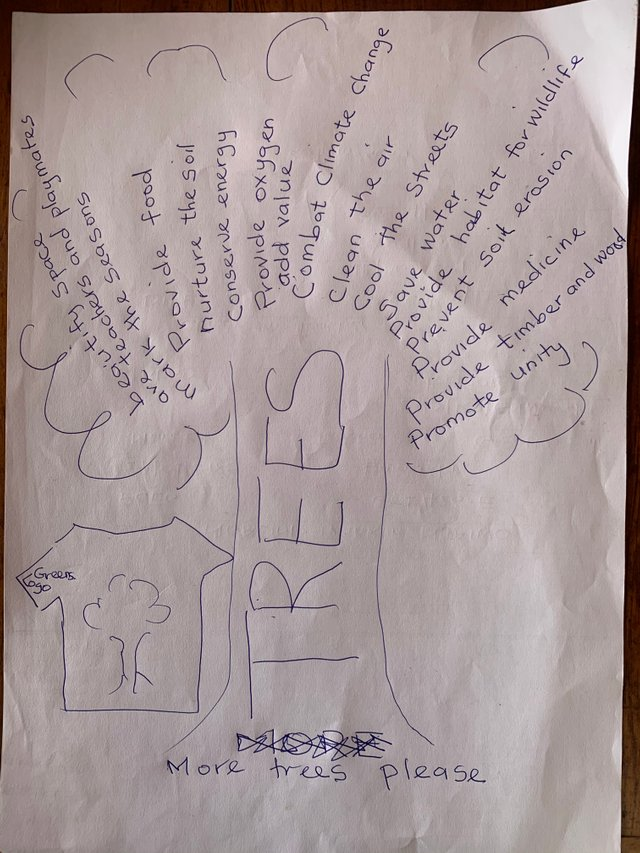 beautify space
are teachers and playmates
mark the seasons
Provide food
nurture the soil
Conserve energy
Provide oxygen
add value
Combat Climate Change
Clean the air
Cool the Streets
Save water
Provide habitat for wildlife
Prevent soil erosion
Provide medicine
Provide timber and wood
Promote unity
TREES
Greens
Logo
More trees please